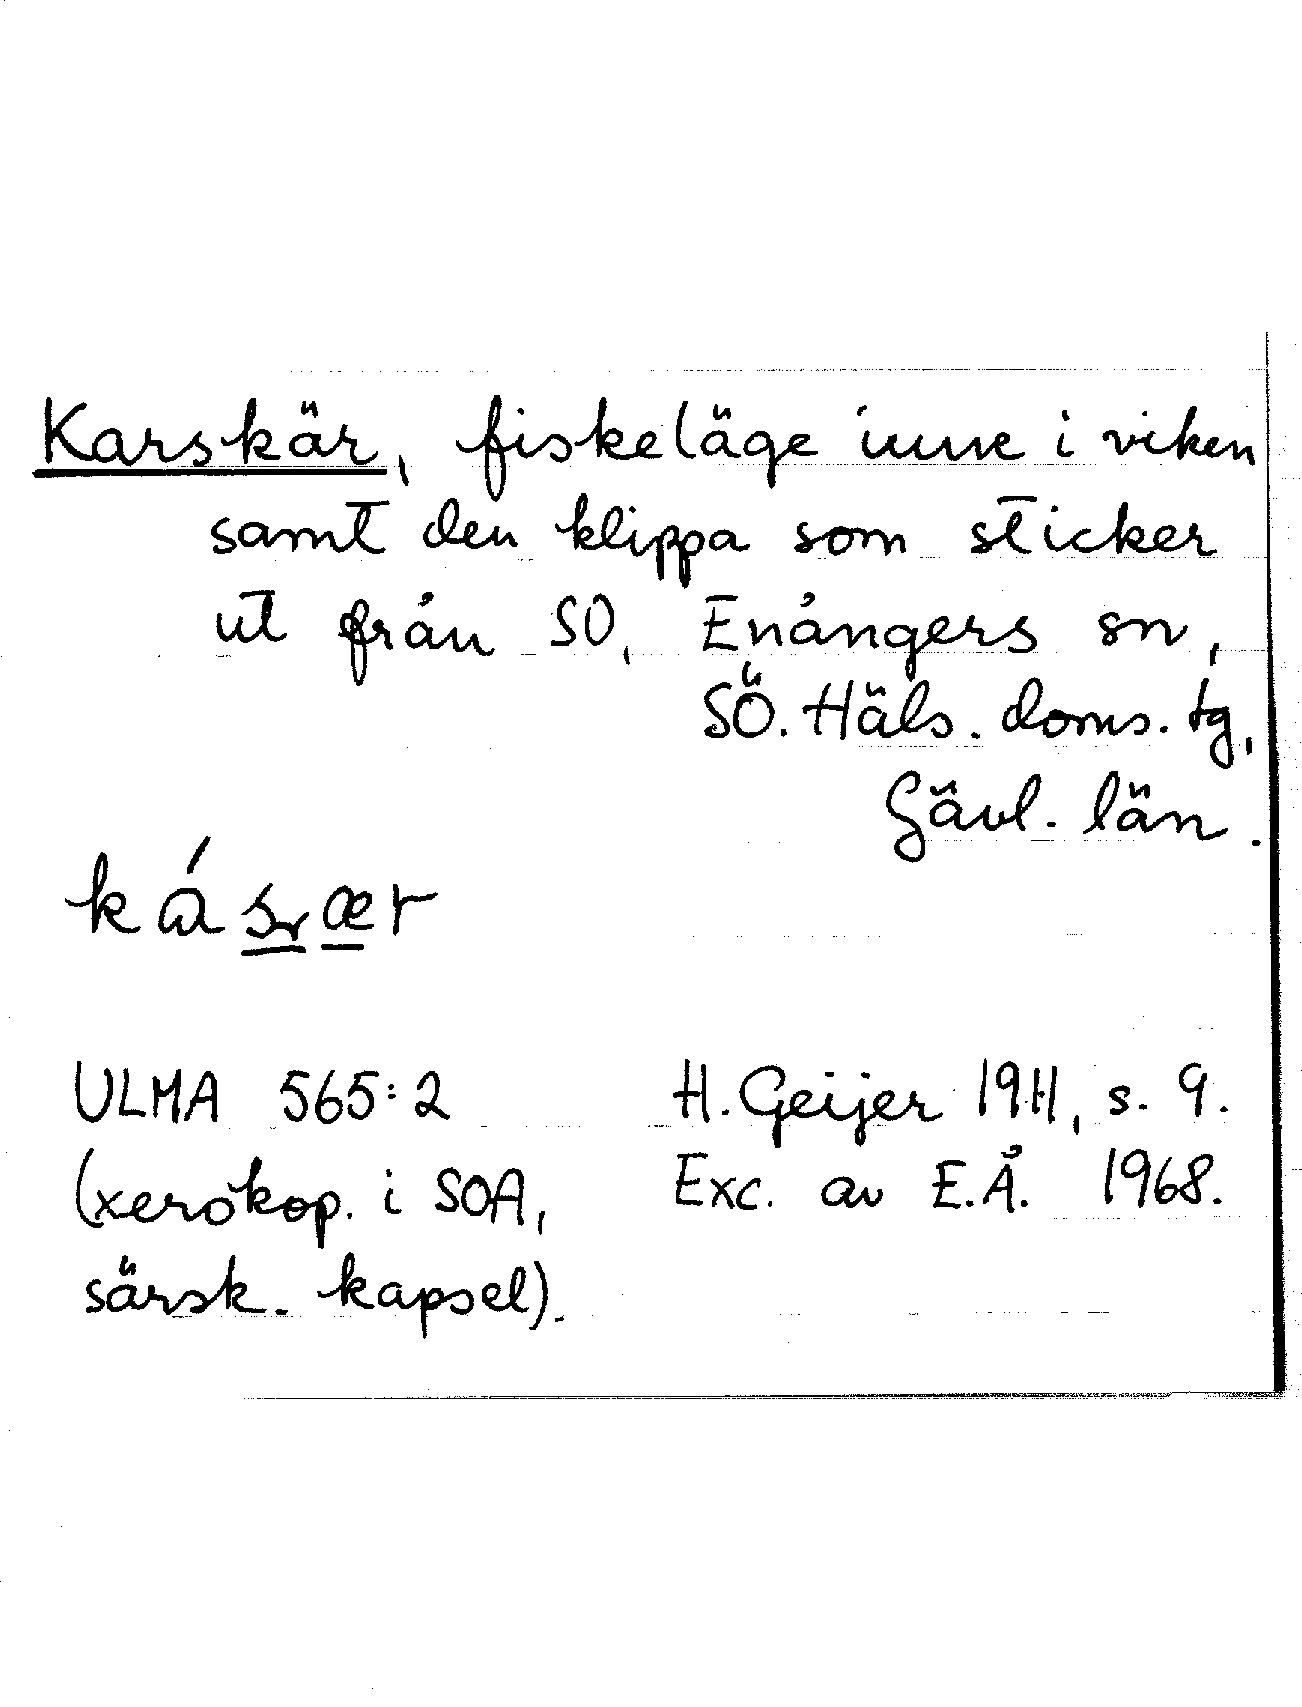 Karskär, fiskeläge inne i viken
samt den klippa som sticker
ut från SO, Enångers sn,
SÖ. Häls. doms. tg,
Gävl. län.
ULMA 565:2
(xerokop. i SOA,
särsk. kapsel).
H. Geijer 1911, s. 9.
Exc. av E.Å. 1968.